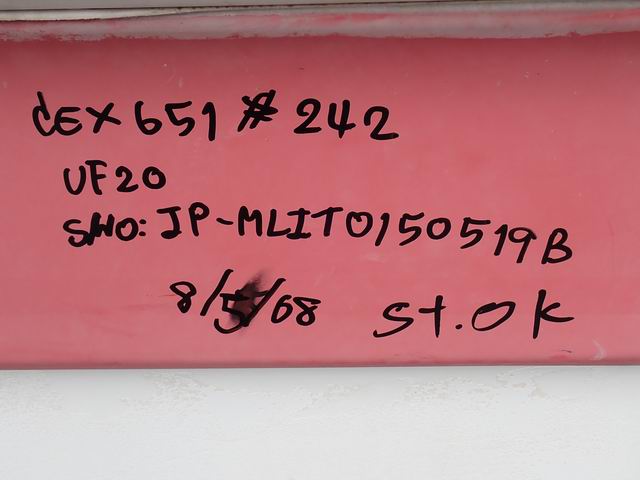 CEX 651 # 242
UF20
S/NO: JP-MLIT0150519B
8/5/08 St. OK